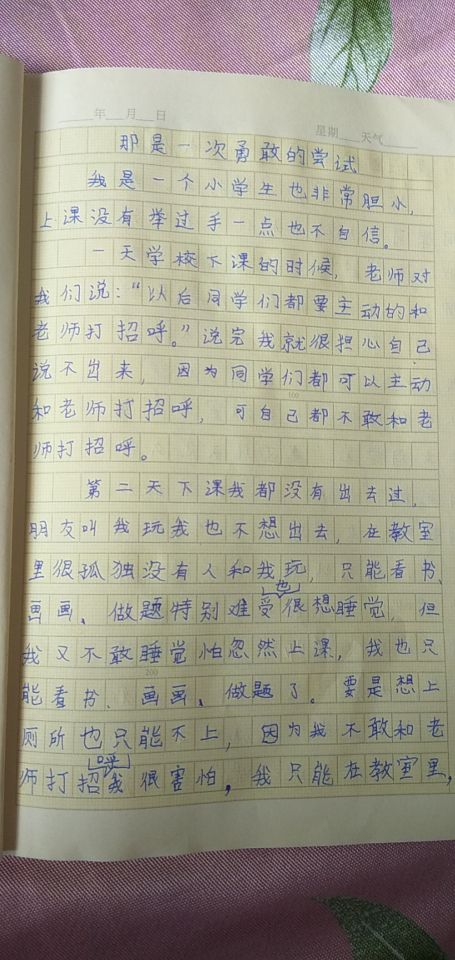 年 月 日
星期 天气
那是一次勇敢的尝试
我是一个小学生也非常胆小,
上课没有举过手一点也不自信。
一天学校下课的时候,老师对
我们说:“以后同学们都要主动的和
老师打招呼。”说完我就很担心自己
说不出来,因为同学们都可以主动
100
和老师打招呼,可自己都不敢和老
师打招呼。
第二天下课我都没有出去过,
朋友叫我玩我也不想出去,在教室
里很孤独没有人和我玩,只能看书、
画画、做题特别难受也很想睡觉,但
我又不敢睡觉怕忽然上课,我也只
200
能看书、画画、做题了。要是想上
厕所也只能不上,因为我不敢和老
师打招呼我很害怕,我只能在教室里,